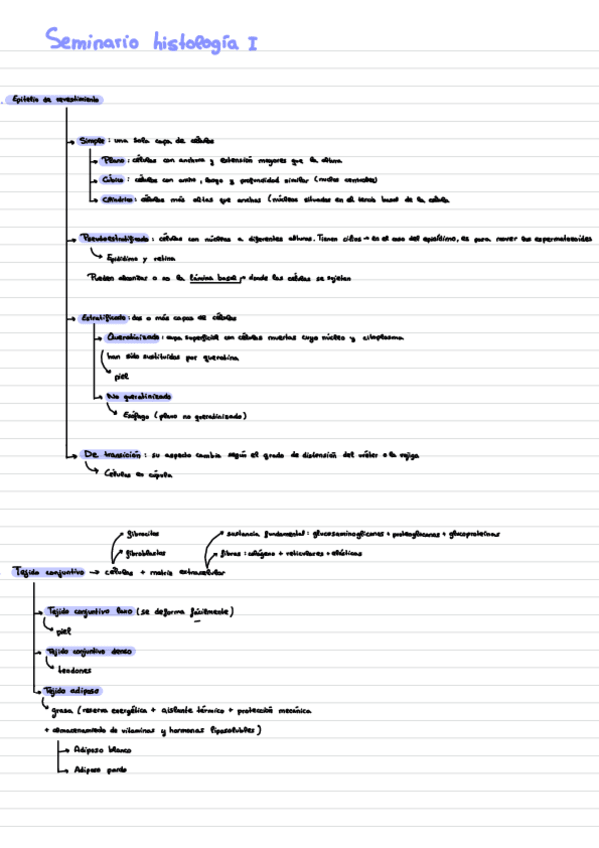 Seminario histología I
Epitelio de revestimiento
Simple : una sola capa de células
Plano : células con anchura y extensión mayores que la altura
Cúbico : células con ancho, largo y profundidad similar (núcleo centrales)
Cilíndrico : células más altas que anchas (núcleos situados en el tercio basal de la célula
Pseudoestratificado : células con núcleos a diferentes alturas. Tienen cilios → en el caso del epidídimo, es para mover los espermatozoides
Epidídimo y retina
Pueden alcanzar o no la lámina basal → donde las células se sujetan
Estratificado : dos o más capas de células
Queratinizado : capa superficial con células muertas cuyo núcleo y citoplasma
han sido sustituidos por queratina
piel
No queratinizado
Esófago (plano no queratinizado)
De transición : su aspecto cambia según el grado de distensión del uréter o la vejiga
Células en cúpula
fibrocitos
sustancia fundamental : glucosaminoglicanos + proteoglucanos + glucoproteínas
fibroblastos
fibras : colágeno + reticulares + elásticas
Tejido conjuntivo → células + matriz extracelular
Tejido conjuntivo laxo (se deforma fácilmente)
piel
Tejido conjuntivo denso
tendones
Tejido adiposo
grasa (reserva energética + aislante térmico + protección mecánica
+ almacenamiento de vitaminas y hormonas liposolubles)
Adiposo blanco
Adiposo pardo